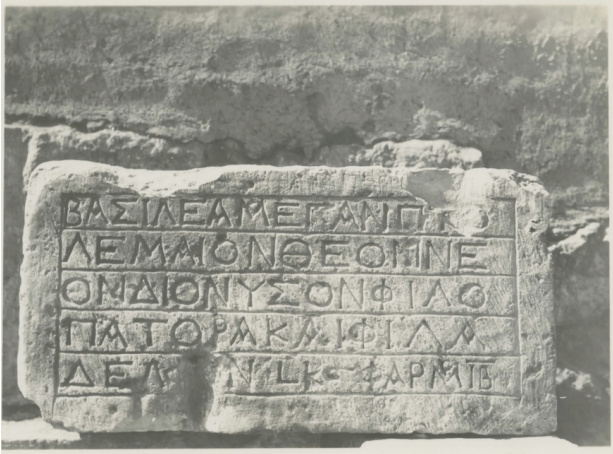 ΒΑΣΙΛΕΑΜΕΓΑΝΠΤΟ
ΛΕΜΑΙΟΝΘΕΟΝΝΕ
ΟΝΔΙΟΝΥΣΟΝΦΙΛΟ
ΠΑΤΟΡΑΚΑΙΦΙΛΑ